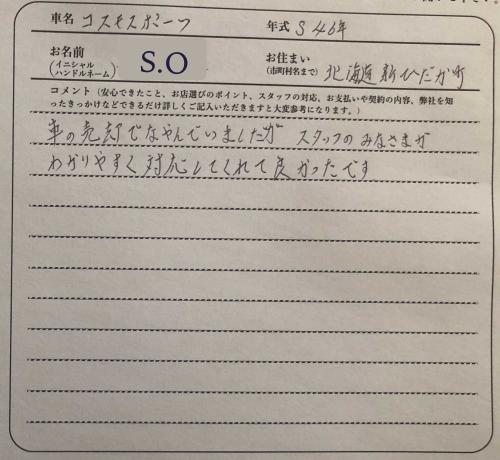 車名 コスモスポーツ 年式 S46年
お名前 (イニシャル ハンドルネーム) S.O お住まい (市町村名まで) 北海道新ひだか町
コメント（安心できたこと、お店選びのポイント、スタッフの対応、お支払いや契約の内容、弊社を知
ったきっかけなどできるだけ詳しくご記入いただきますと大変参考になります。）
車の売却でなやんでいましたが スタッフのみなさまが
わかりやすく対応してくれて良かったです